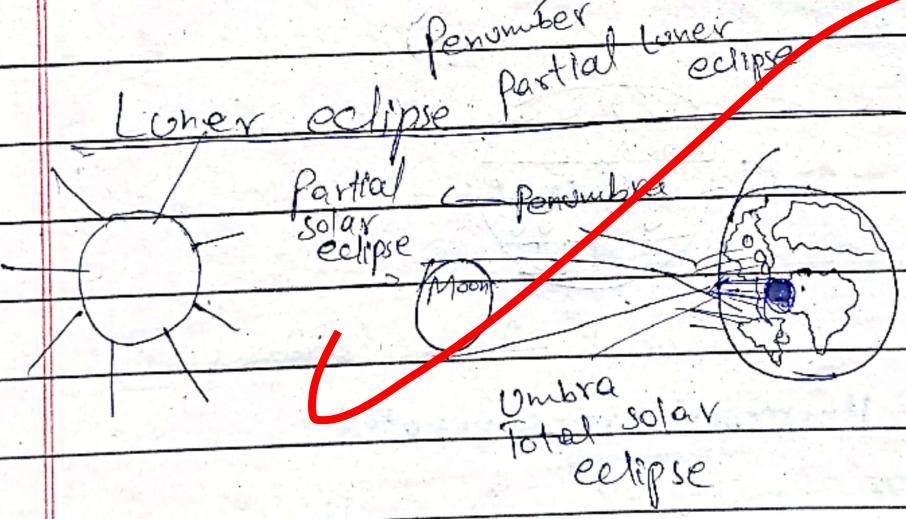 Penumber
Partial Luner
eclipse
Luner eclipse
Partial
solar
eclipse
Penumbra
Moon
Umbra
Total solar
eclipse